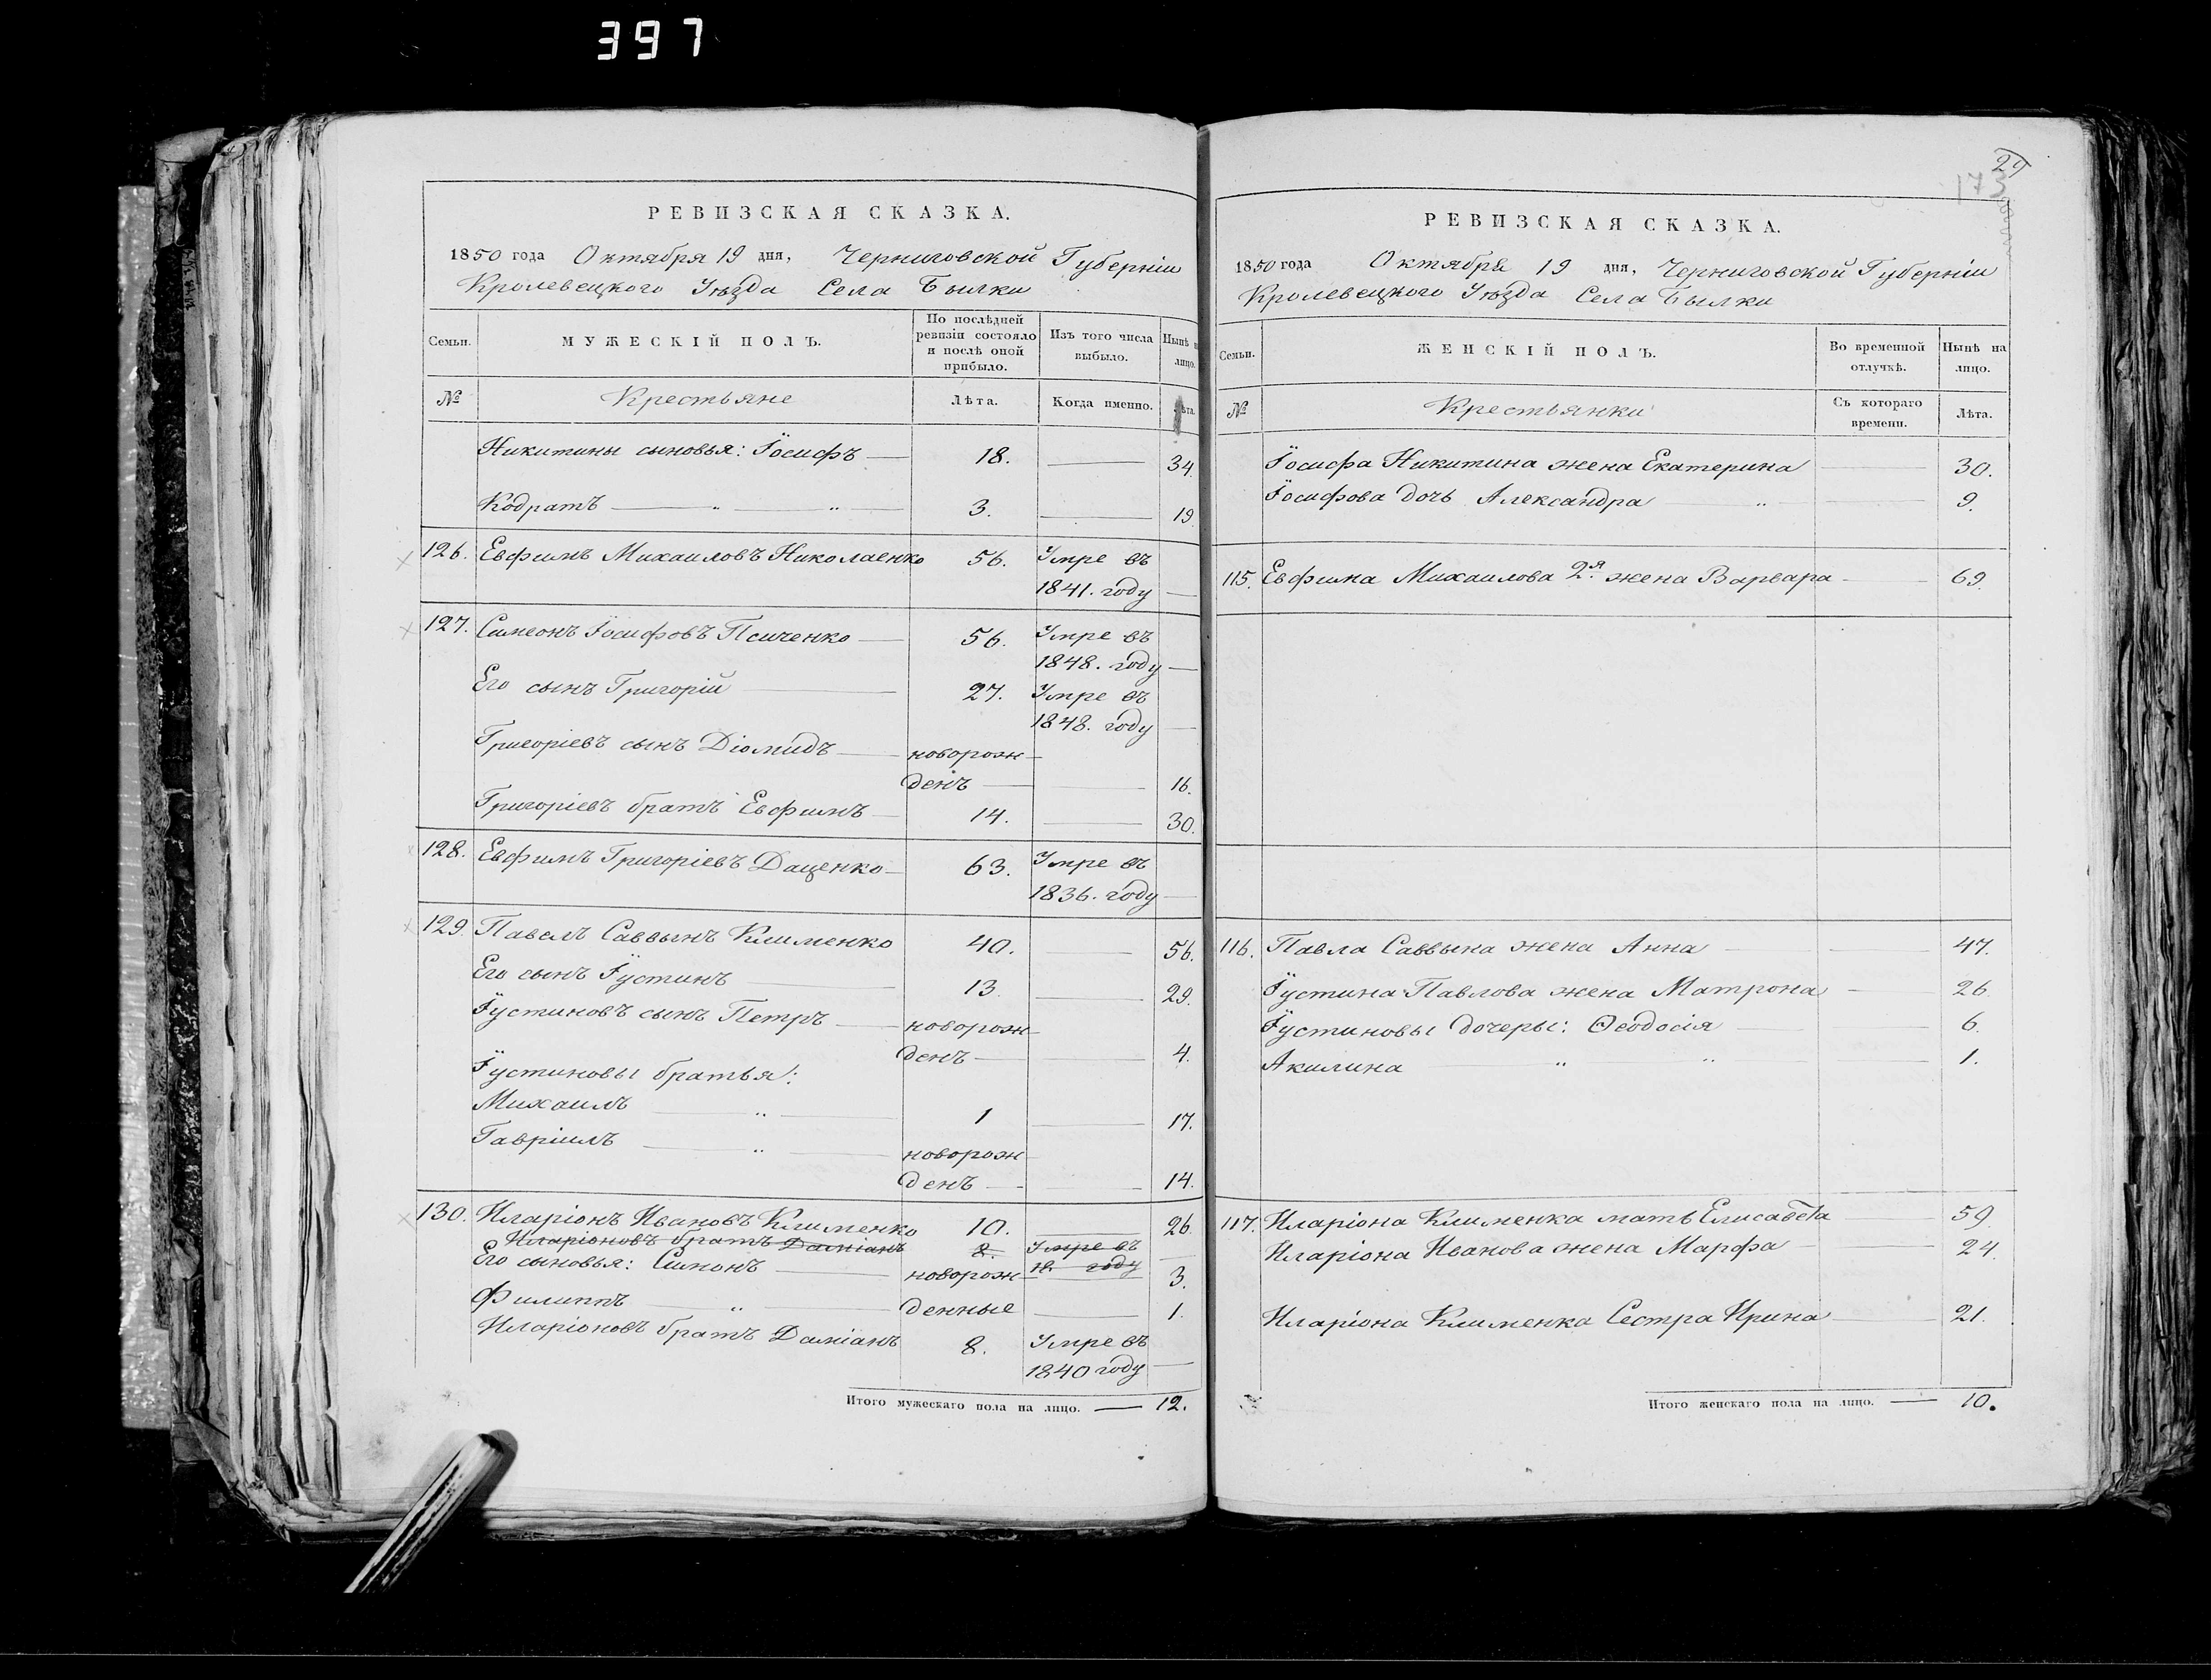 397
РЕВИЗСКАЯ СКАЗКА.
1850 года Октября 19 дня, Черниговской Губерніи
Кролевецкого Уѣзда Села Былки
Семьи.
МУЖЕСКІЙ ПОЛЪ.
По послѣдней
ревизіи состояло
и послѣ оной
прибыло.
Изъ того числа
выбыло.
Нынѣ на
лицо.
№
Крестьяне
Лѣта.
Когда именно.
Лѣта.
Никитины сыновья: Іосифъ — 18. — 34.
Кодратъ — „ — „ — 3. — 19.
126. Евфимъ Михаиловъ Николаенко 56. Умре въ
1841. году —
127. Симеонъ Іосифовъ Псиченко — 56. Умре въ
1848. году —
Его сынъ Григорій — 27. Умре въ
1848. году —
Григоріевъ сынъ Діомидъ — новорож—
денъ — — 16.
Григоріевъ братъ Евфимъ — 14. — 30.
128. Евфимъ Григоріевъ Даценко — 63. Умре въ
1836. году —
129. Павелъ Саввынъ Клименко 40. — 56.
Его сынъ Іустинъ — 13. — 29.
Іустиновъ сынъ Петръ — новорож—
денъ — — 4.
Іустиновы братья:
Михаилъ — „ — 1 — 17.
Гавріилъ — „ — новорож
денъ — — 14.
130. Иларіонъ Ивановъ Клименко 10. — 26.
Иларіоновъ братъ Даміанъ 8. Умре въ —
18 году
Его сыновья: Симонъ — новорож— 3.
Филиппъ — „ — денные — 1.
Иларіоновъ братъ Даміанъ 8. Умре въ
1840 году —
Итого мужескаго пола на лицо. — 12.
29
173
РЕВИЗСКАЯ СКАЗКА.
1850 года Октября 19 дня, Черниговской Губерніи
Кролевецкого Уѣзда Села Былки
Семьи.
ЖЕНСКІЙ ПОЛЪ.
Во временной
отлучкѣ.
Нынѣ на
лицо.
№
Крестьянки
Съ котораго
времени.
Лѣта.
Іосифа Никитина жена Екатерина — 30.
Іосифова дочь Александра — „ — 9.
115. Евфима Михаилова 2я. жена Варвара — 69.
116. Павла Саввына жена Анна — 47.
Іустина Павлова жена Матрона — 26
Іустиновы дочеры: Ѳеодосія — 6.
Акилина „ — „ — 1.
117. Иларіона Клименка мать Елисавета — 59
Иларіона Иванова жена Марфа — 24.
Иларіона Клименка Сестра Ирина — 21.
Итого женскаго пола на лицо. — 10.